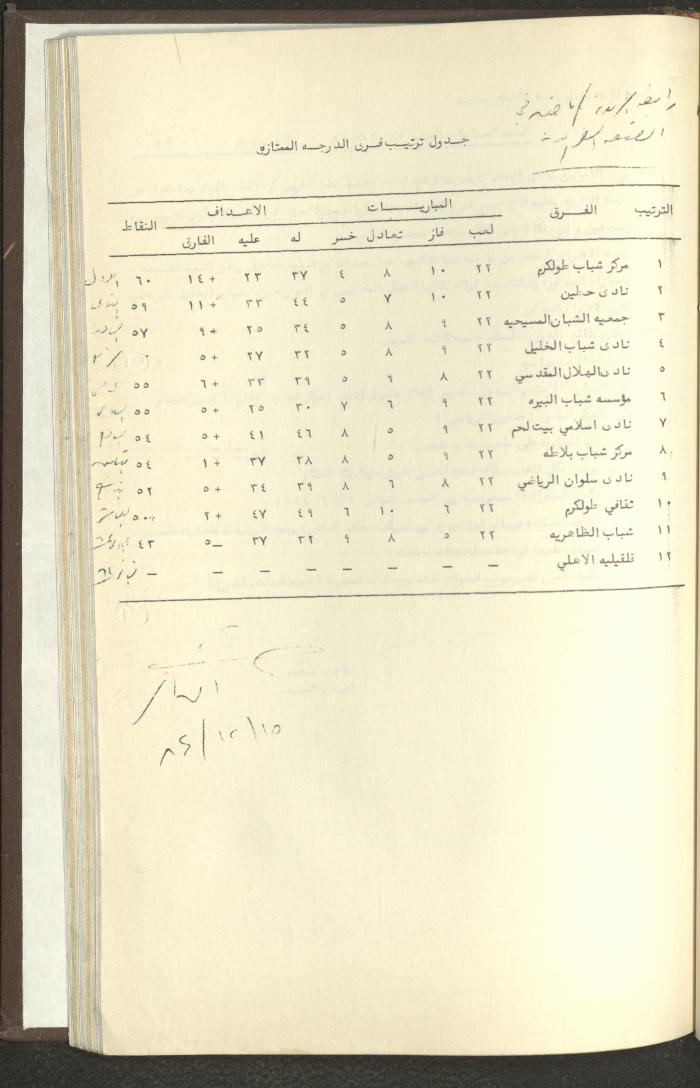 جدول ترتيب فرق الدرجه الممتازه
الترتيب الفــرق المباريـــات الاهــداف النقاط
لعب فاز تعادل خسر له عليه الفارق
١ مركز شباب طولكرم ٢٢ ١٠ ٨ ٤ ٣٧ ٢٣ +١٤ ٦٠
٢ نادى حطين ٢٢ ١٠ ٧ ٥ ٤٤ ٣٣ +١١ ٥٩
٣ جمعيه الشبان المسيحيه ٢٢ ٩ ٨ ٥ ٣٤ ٢٥ +٩ ٥٧
٤ نادى شباب الخليل ٢٢ ٩ ٨ ٥ ٣٢ ٢٧ +٥
٥ نادى الهلال المقدسي ٢٢ ٨ ٩ ٥ ٣٩ ٣٣ +٦ ٥٥
٦ مؤسسه شباب البيره ٢٢ ٩ ٦ ٧ ٣٠ ٢٥ +٥ ٥٥
٧ نادى اسلامي بيت لحم ٢٢ ٩ ٥ ٨ ٤٦ ٤١ +٥ ٥٤
٨ مركز شباب بلاطه ٢٢ ٩ ٥ ٨ ٣٨ ٣٧ +١ ٥٤
٩ نادى سلوان الرياضي ٢٢ ٨ ٦ ٨ ٣٩ ٣٤ +٥ ٥٢
١٠ ثقافي طولكرم ٢٢ ٦ ١٠ ٦ ٤٩ ٤٧ +٢ ٥٠
١١ شباب الظاهريه ٢٢ ٥ ٨ ٩ ٣٢ ٣٧ _٥ ٤٣
١٢ قلقيليه الاهلي – – – – – – – –
٨٤/١٢/١٥